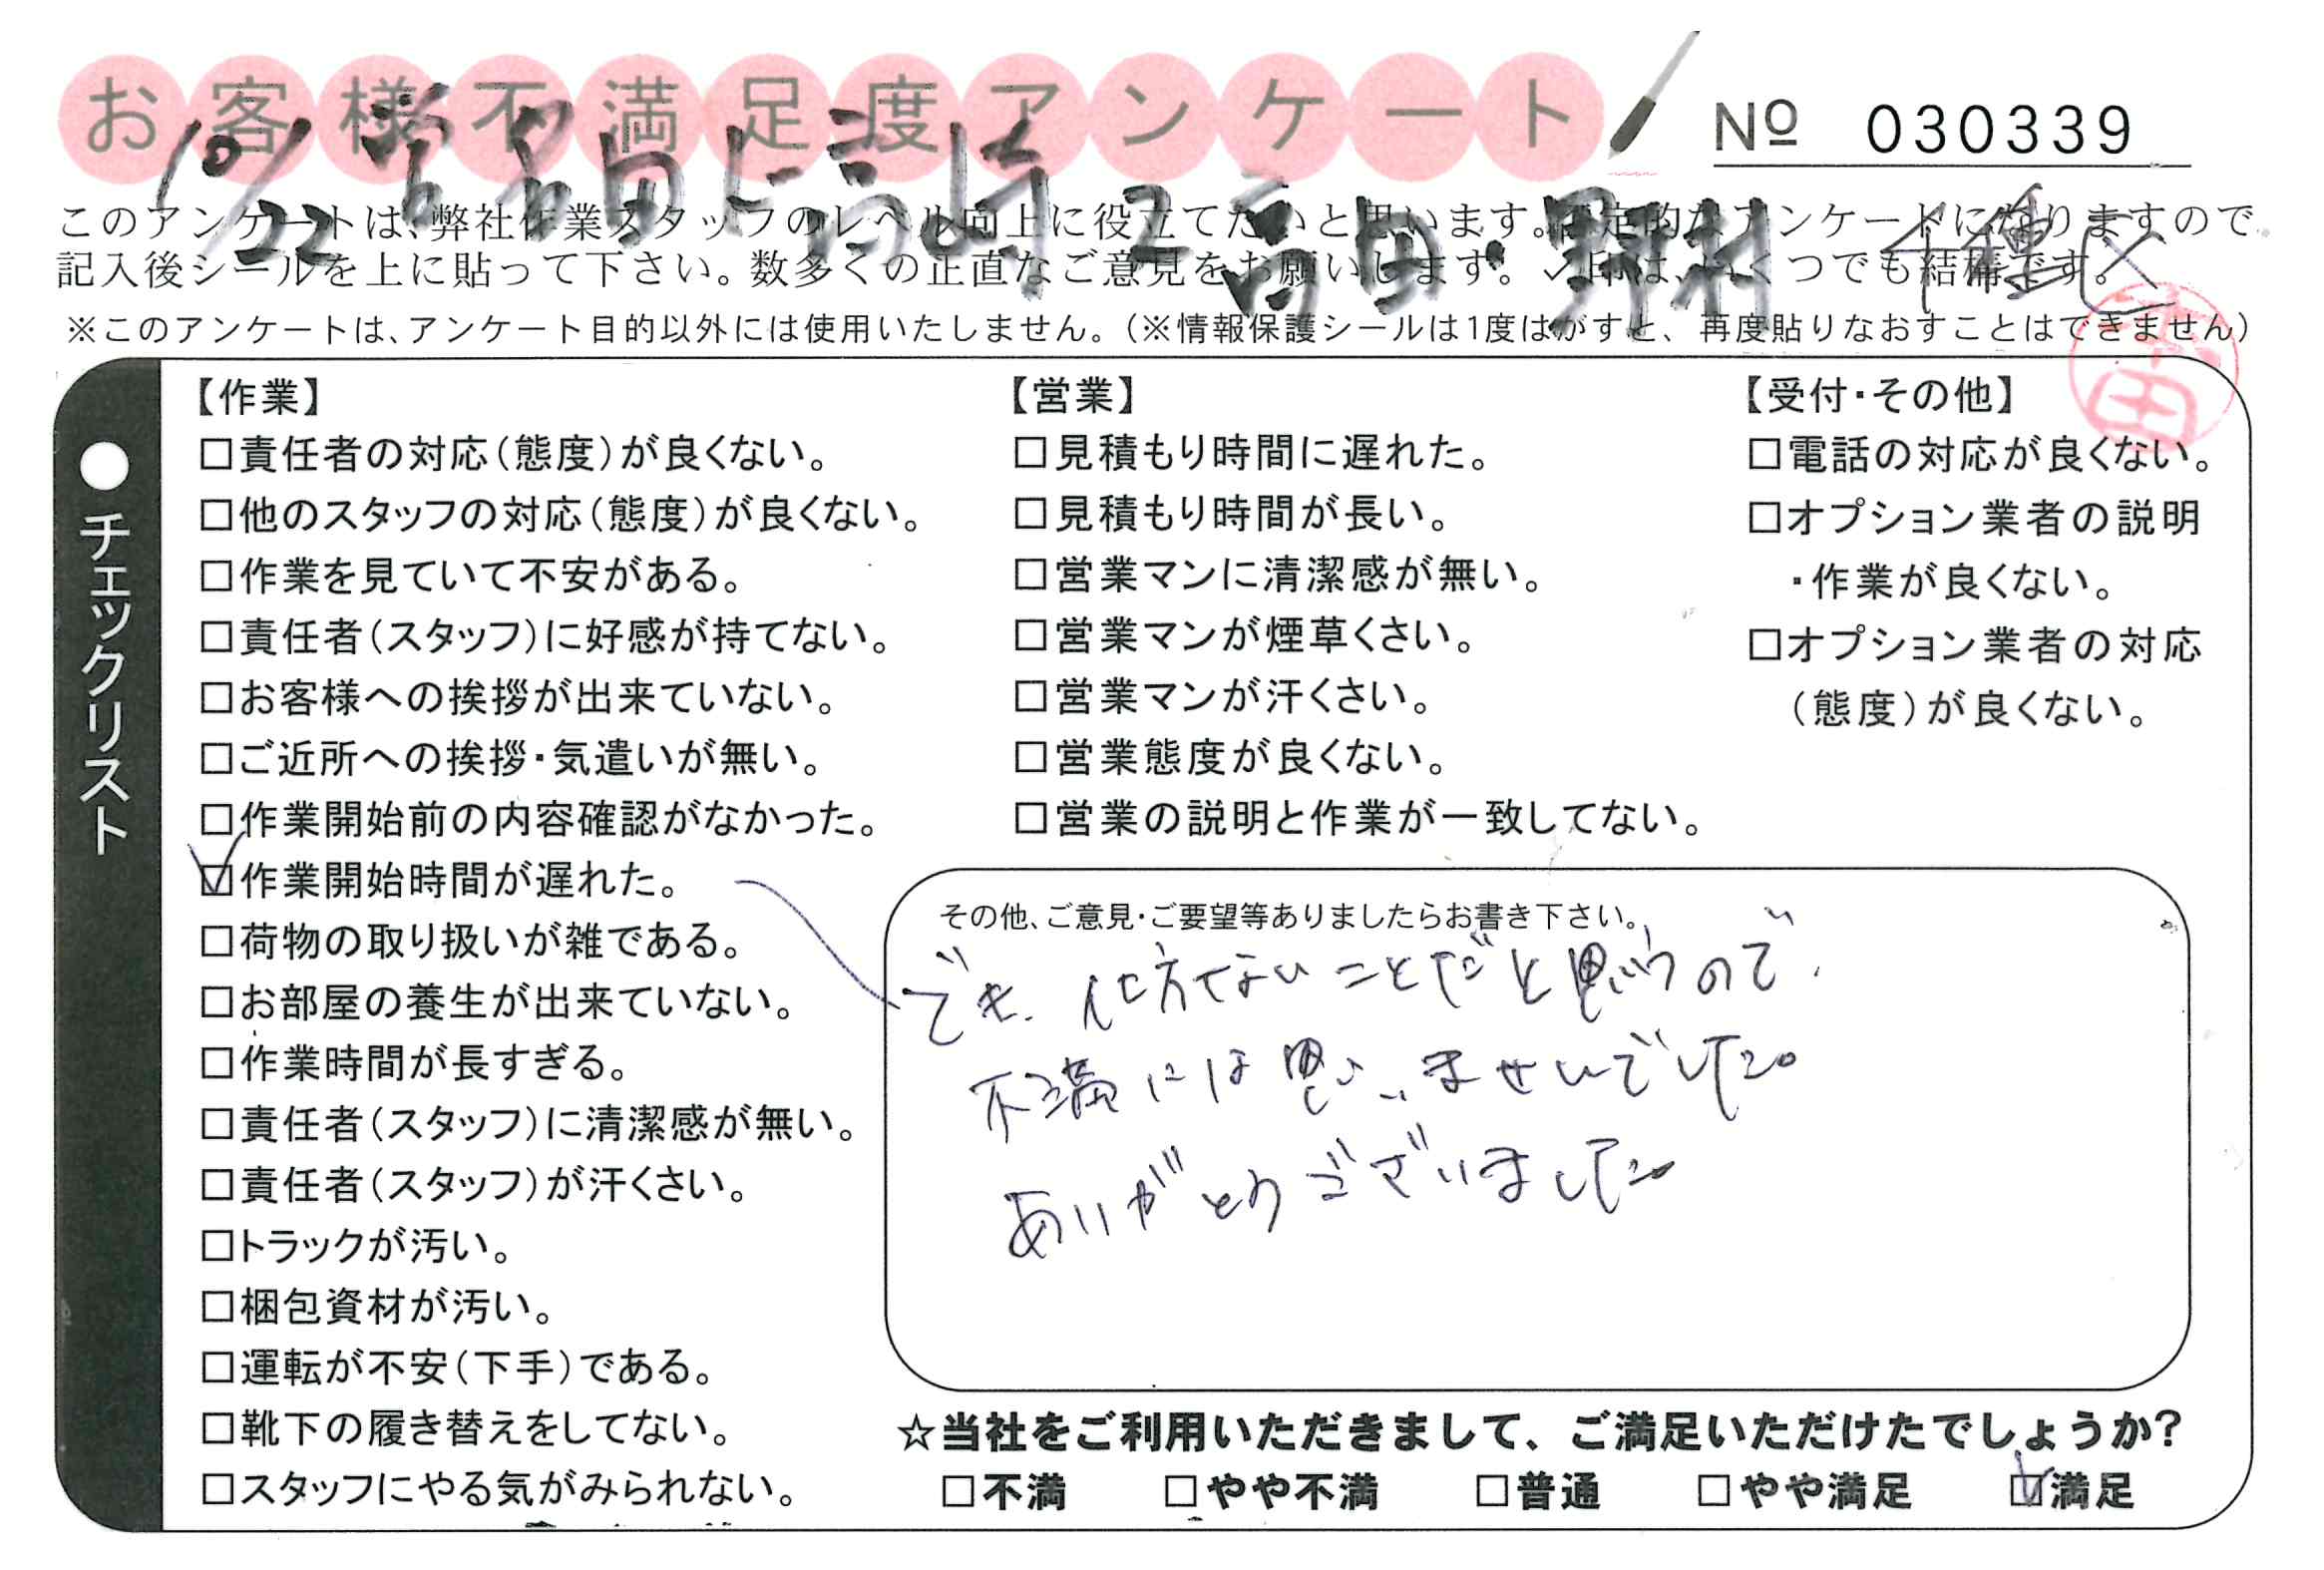 お客様不満足度アンケート
№ 030339
10/22
高田・野村
千種
このアンケートは、弊社作業スタッフのレベル向上に役立てたいと思います。否定的なアンケートになりますので
記入後シールを上に貼って下さい。数多くの正直なご意見をお願いします。✓印は、いくつでも結構です。
※このアンケートは、アンケート目的以外には使用いたしません。（※情報保護シールは1度はがすと、再度貼りなおすことはできません）
●チェックリスト
【作業】
□責任者の対応（態度）が良くない。
□他のスタッフの対応（態度）が良くない。
□作業を見ていて不安がある。
□責任者（スタッフ）に好感が持てない。
□お客様への挨拶が出来ていない。
□ご近所への挨拶・気遣いが無い。
□作業開始前の内容確認がなかった。
☑作業開始時間が遅れた。
□荷物の取り扱いが雑である。
□お部屋の養生が出来ていない。
□作業時間が長すぎる。
□責任者（スタッフ）に清潔感が無い。
□責任者（スタッフ）が汗くさい。
□トラックが汚い。
□梱包資材が汚い。
□運転が不安（下手）である。
□靴下の履き替えをしてない。
□スタッフにやる気がみられない。
【営業】
□見積もり時間に遅れた。
□見積もり時間が長い。
□営業マンに清潔感が無い。
□営業マンが煙草くさい。
□営業マンが汗くさい。
□営業態度が良くない。
□営業の説明と作業が一致してない。
【受付・その他】
□電話の対応が良くない。
□オプション業者の説明
・作業が良くない。
□オプション業者の対応
（態度）が良くない。
その他、ご意見・ご要望等ありましたらお書き下さい。
でも、仕方ないことだと思うので、
不満には思いませんでした。
ありがとうございました。
☆当社をご利用いただきまして、ご満足いただけたでしょうか？
□不満 □やや不満 □普通 □やや満足 ☑満足